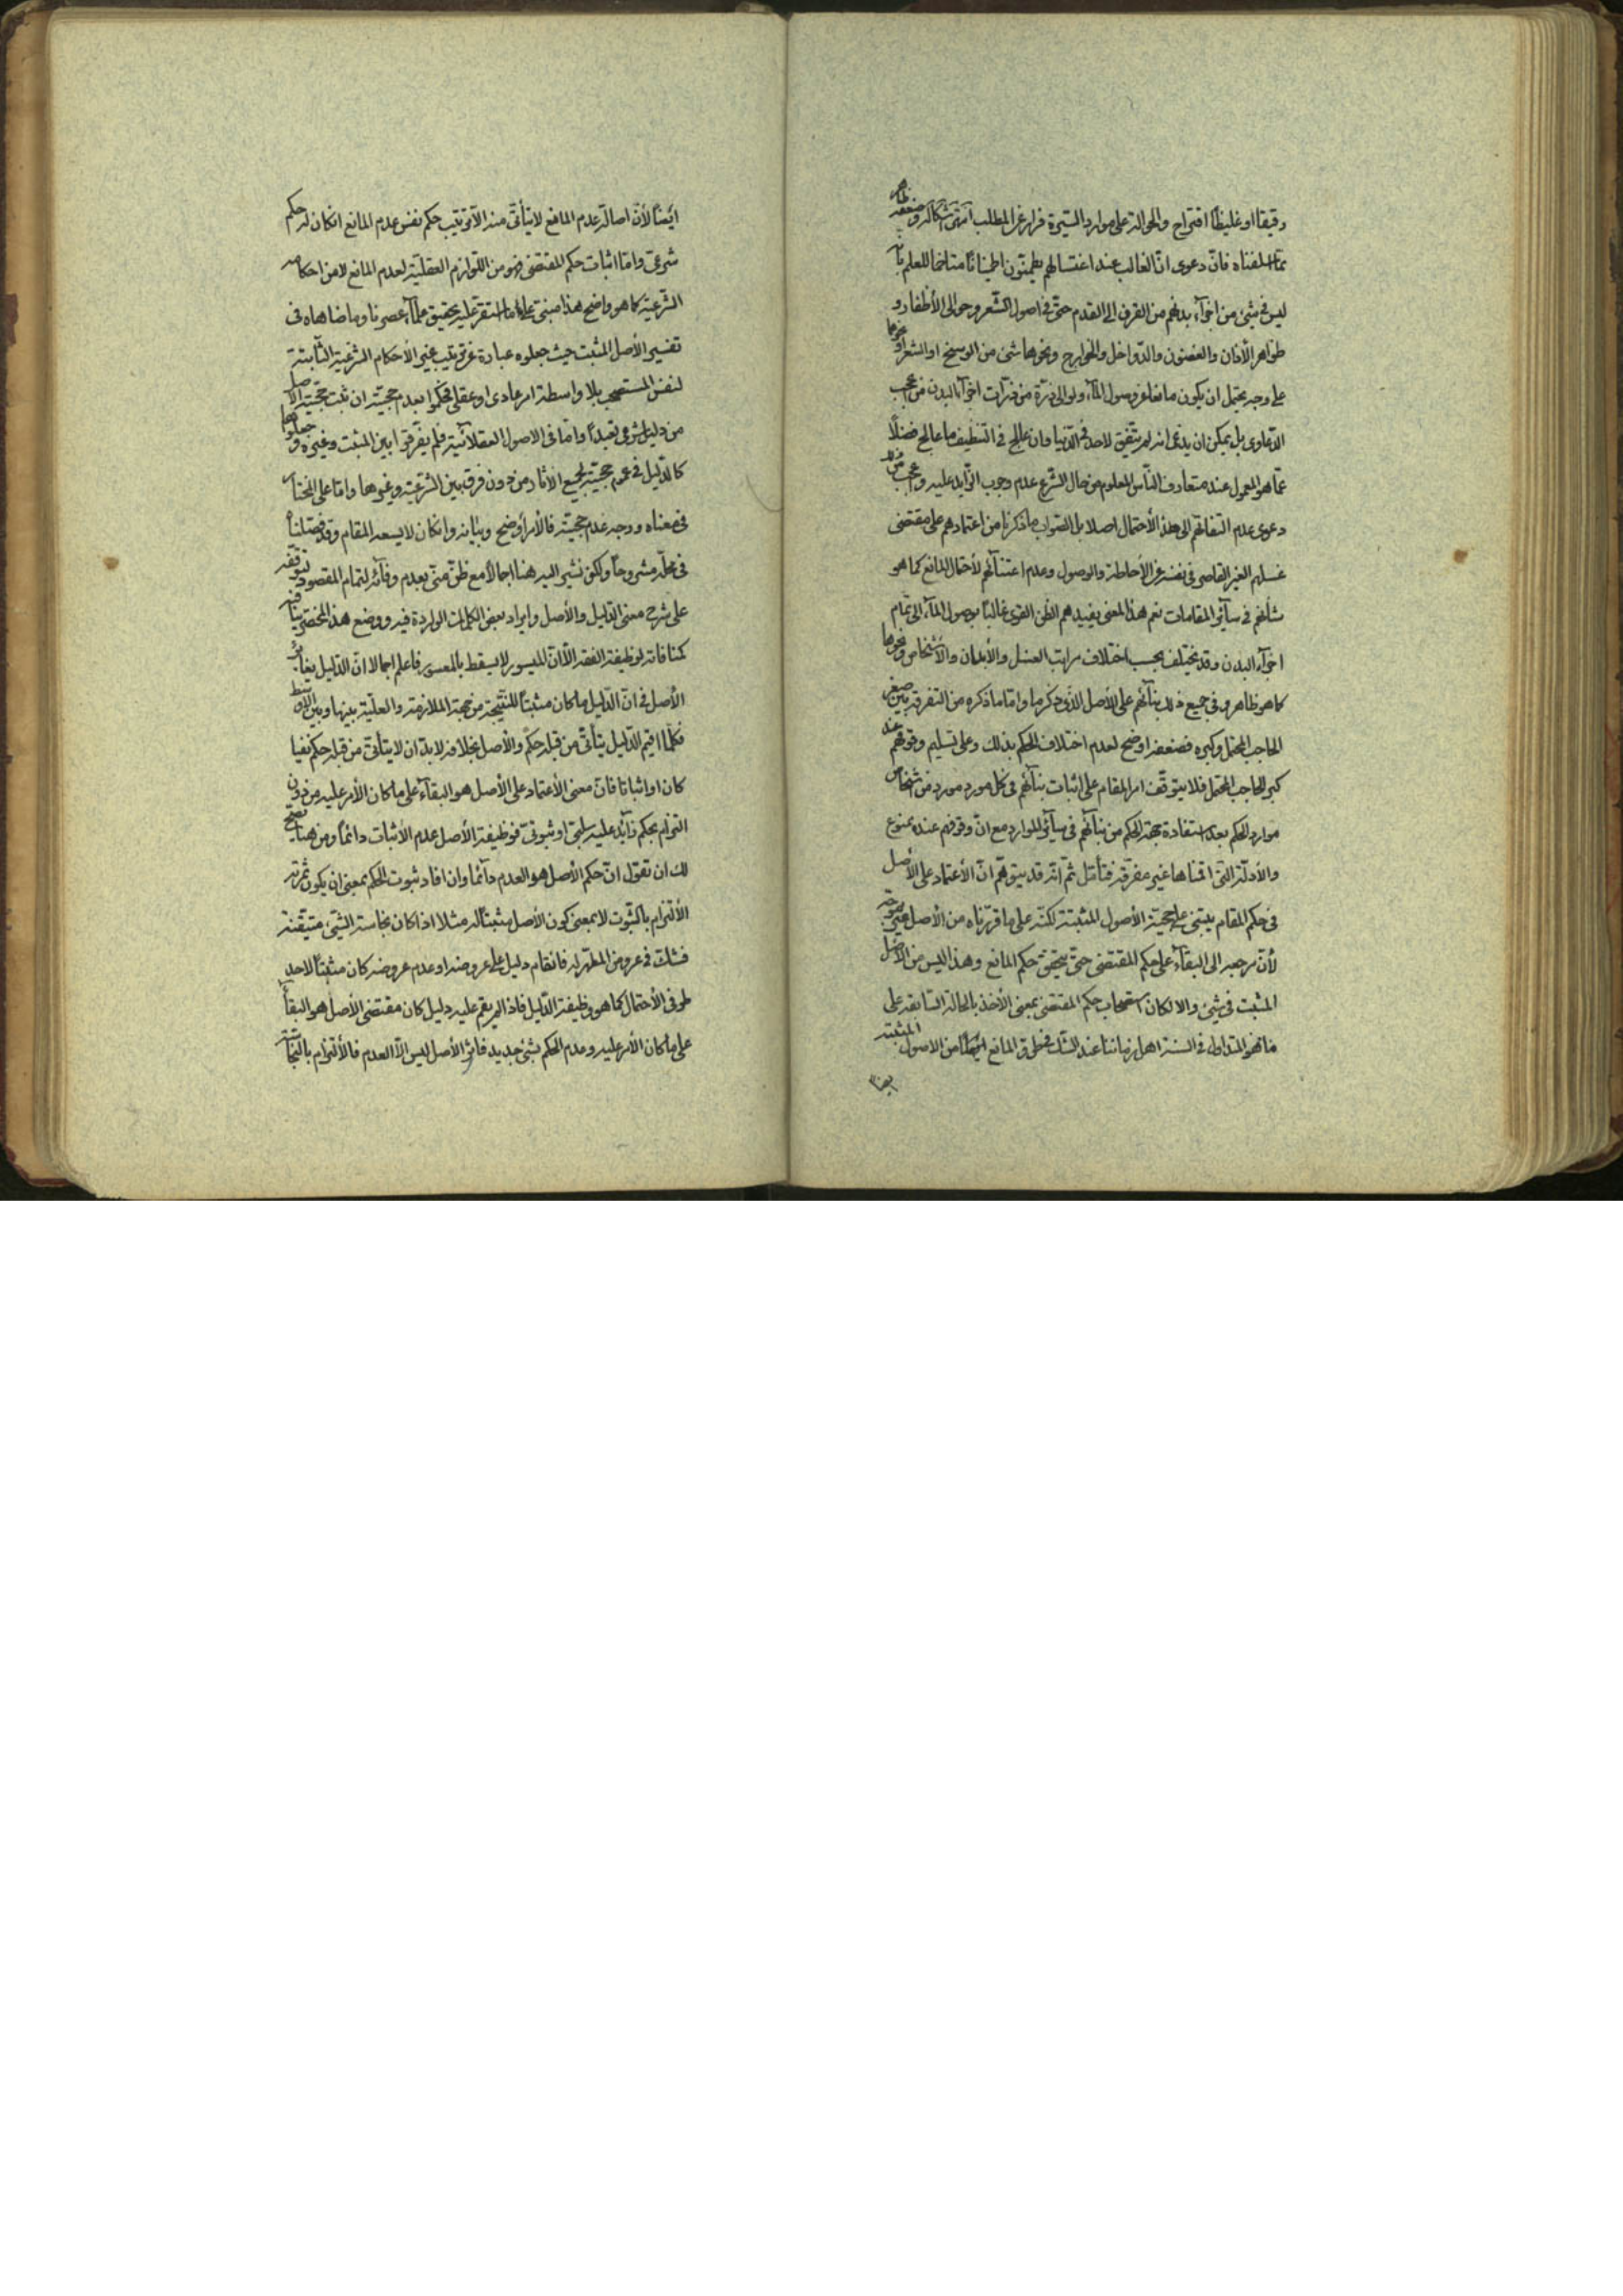 دقيقا او غليظا اقتراح والحوالة على موارد السيرة فرار عن المطلب انتهى اشكاله وضعفه ظاهر
مما اسلفناه فان دعوى ان الغالب عند اغتسالهم يطمئنون اطمينانا متاخما للعلم بانه
ليس فى شئ من اجزآء بدنهم من القرن الى القدم حتى فى اصول الشعر وحوالى الأظفار و
ظواهر الآذان والغضون والدواخل والخوارج ونحوها شئ من الوسخ او الشعر او نحوها
على وجه يحتمل ان يكون مانعا عن وصول المآء ولو الى ذرة من ذرات اجزآء البدن من عجب
الدعاوى بل يمكن ان يدعى انه لم يتفق لاحد فى الدنيا وان عالج فى التنظيف ما عالج فضلا
عما هو المعمول عند متعارف الناس المعلوم من حال الشرع عدم وجوب الزآيد عليه واعجب منه
دعوى عدم التفاتهم الى هذا الأحتمال اصلا بل الصواب ما ذكرنا من اعتمادهم على مقتضى
غسلهم الغير القاصر فى نفسه عن الأحاطة والوصول وعدم اعتنآئهم لأحتمال المانع كما هو
شأنهم فى سآئر المقامات نعم هذا المعنى يفيدهم الظن القوى غالبا بوصول المآء الى تمام
اجزآء البدن وقد يختلف بحسب اختلاف مراتب الغسل والأبدان والأشخاص ونحوها
كما هو ظاهر وفى جميع ذلك بنآئهم على الأصل الذى ذكرنا واما ما ذكره من التفرقة بين صغر
الحاجب المحتمل وكبره فضعفه اوضح لعدم اختلاف الحكم بذلك وعلى تسليم وقوفهم عند
كبر الحاجب المحتمل فلا يتوقف امر المقام على اثبات بنآئهم فى كل مورد مورد من اشخاص
موارد الحكم بعد استفادة جهة الحكم من بنآئهم فى سآئر الموارد مع ان وقوفهم عنده ممنوع
والأدلة التى اقمناها غير مفرقة فتأمل ثم انه قد يتوهم ان الأعتماد على الأصل
فى حكم المقام يبتنى على حجية الأصول المثبتة لكنه على ما قررناه من الأصل غير موجه
لأن مرجعه الى البقآء على حكم المقتضى حتى يتحقق حكم المانع وهذا ليس من الاصل
المثبت فى شئ والا لكان استصحاب حكم المقتضى بمعنى الأخذ بالحالة السابقة على
ما هو المتداول فى السنة اهل زماننا عند الشك فى طرو المانع ايضا من الاصول المثبتة
ايضا
ايضا لأن اصالة عدم المانع لا يتأتى منه الا ترتيب حكم نفس عدم المانع ان كان له حكم
شرعى واما اثبات حكم المقتضى فهو من اللوازم العقلية لعدم المانع لا من احكامه
الشرعية كما هو واضح هذا مبنى على ما استقر عليه تحقيق علمآء عصرنا وما ضاهاه فى
تفسير الأصل المثبت حيث جعلوه عبارة عن ترتيب غير الأحكام الشرعية الثابتة
لنفس المستصحب بلا واسطة امر عادى او عقلى فحكموا بعدم حجيته ان ثبت حجية الاصل
من دليل شرعى تعبدا واما فى الاصول العقلآئية فلم يفرقوا بين المثبت وغيره وجعلوها
كالدليل فى عموم حجيته لجميع الآثار من دون فرق بين الشرعية وغيرها واما على المختار
فى معناه ووجه عدم حجيته فالأمر أوضح وبيانه وان كان لا يسعه المقام وقد فصلناه
فى محله مشروحا ولكن نشير اليه هنا اجمالا مع ظن منى بعدم وفآئه لتمام المقصود لتوقفه
على شرح معنى الدليل والأصل وايراد بعض الكلمات الواردة فيه ووضع هذا المختصر ينافيه
كمنافاته لوظيفة الفقه الا ان الميسور لا يسقط بالمعسور فاعلم اجمالا ان الدليل يغاير
الأصل فى ان الدليل ما كان مثبتا للنتيجة من جهة الملازمة والعلية بينها وبين الاوسط
فكلما اقيم الدليل يتأتى من قبله حكم والأصل بخلافه لا بد ان لا يتأتى من قبله حكم نفيا
كان او اثباتا فان معنى الأعتماد على الأصل هو البقآء على ما كان الأمر عليه من دون
التزام بحكم زآئد عليه سلبى او ثبوتى فوظيفة الأصل عدم الأثبات دائما ومن هنا يصح
لك ان تقول ان حكم الأصل هو العدم دآئما وان افاد ثبوت الحكم بمعنى ان يكون ثمرته
الألتزام بالثبوت لا بمعنى كون الأصل مثبتا له مثلا اذا كان نجاسة الشئ متيقنة
فشك فى عروض المطهر له فان قام دليل على عروضه او عدم عروضه كان مثبتا لاحد
طرفى الأحتمال كما هو وظيفة الدليل فاذا لم يقم عليه دليل كان مقتضى الأصل هو البقآء
على ما كان الأمر عليه وعدم الحكم بشئ جديد فاثر الأصل ليس الا العدم فالألتزام بالنجاسة